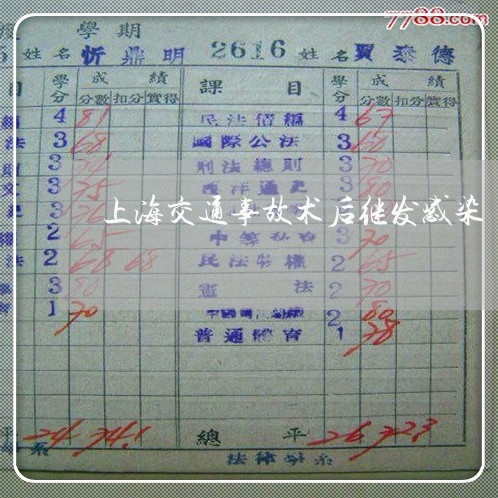 7788.com
學期
姓名 忻鼎明 2616 姓名 賈泰德
目 學分 成績 課目 學分 成績
分數 扣分 實得 分數 扣分 實得
4 81 民法債編 4 67
法 3 68 國際公法 3 60
3 刑法總則 3 70
3 75 西洋通史 3 80
上海交通事故术后继发感染
2 65 3 70
法 2 68 68 民法物權 2 65
3 80 憲法 2 70
1 70 2 80
普通體育 1 78
平 24 74.1 總平 26 72.3
系 法律學系